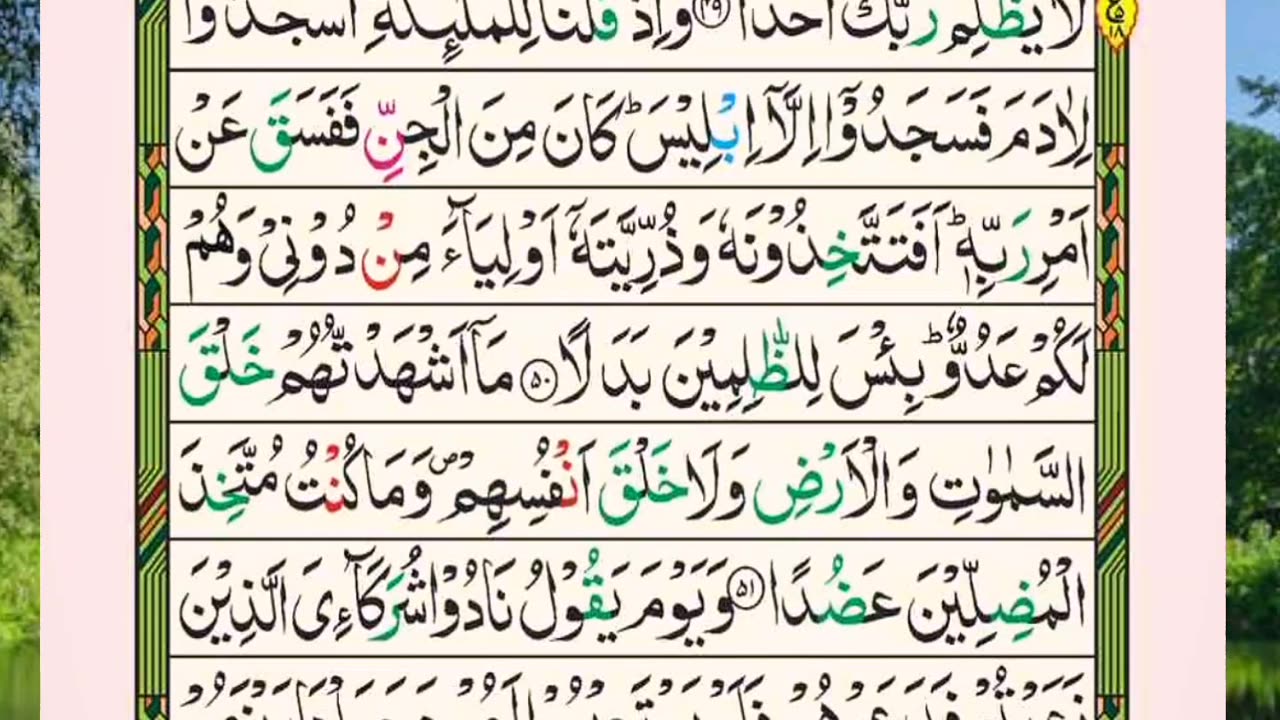 لَا يَظْلِمُ رَبُّكَ اَحَدًا ۝۴۹ وَاِذْ قُلْنَا لِلْمَلٰٓئِكَةِ اسْجُدُوْا
۱۸
لِاٰدَمَ فَسَجَدُوْۤا اِلَّاۤ اِبْلِيْسَ ؕ كَانَ مِنَ الْجِنِّ فَفَسَقَ عَنْ
اَمْرِ رَبِّهٖ ؕ اَفَتَتَّخِذُوْنَهٗ وَذُرِّيَّتَهٗۤ اَوْلِيَآءَ مِنْ دُوْنِيْ وَهُمْ
لَكُمْ عَدُوٌّ ؕ بِئْسَ لِلظّٰلِمِيْنَ بَدَلًا ۝۵۰ مَاۤ اَشْهَدْتُّهُمْ خَلْقَ
السَّمٰوٰتِ وَالْاَرْضِ وَلَا خَلْقَ اَنْفُسِهِمْ ۪ وَمَا كُنْتُ مُتَّخِذَ
الْمُضِلِّيْنَ عَضُدًا ۝۵۱ وَيَوْمَ يَقُوْلُ نَادُوْا شُرَكَآءِيَ الَّذِيْنَ